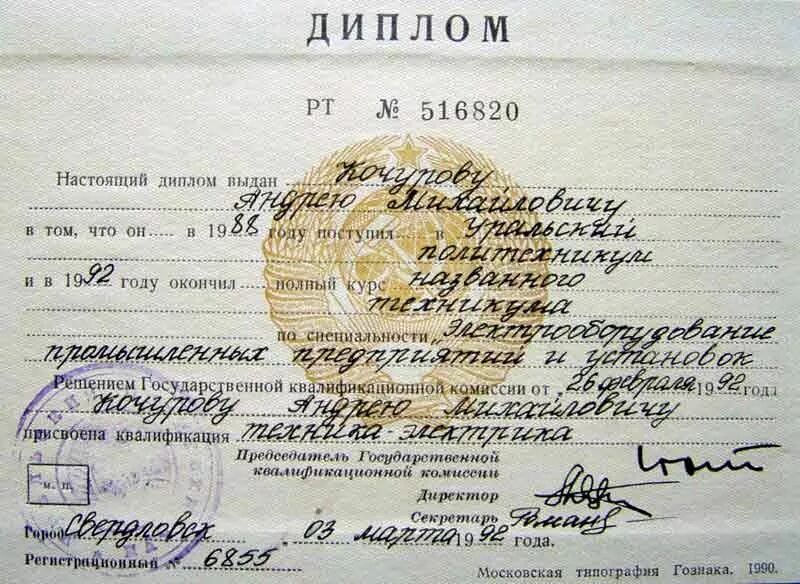 ДИПЛОМ
РТ № 516820
Настоящий диплом выдан Кочурову
Андрею Михайловичу
в том, что он в 1988 году поступил в Уральский
политехникум
и в 1992 году окончил полный курс названного
техникума
по специальности „Электрооборудование
промышленных предприятий и установок
Решением Государственной квалификационной комиссии от 26 февраля 1992 года
Кочурову Андрею Михайловичу
присвоена квалификация техника-электрика
Председатель Государственной
квалификационной комиссии
Директор
Секретарь
м. п.
Город Свердловск 03 марта 1992 года.
Регистрационный № 6855
Московская типография Гознака. 1990.